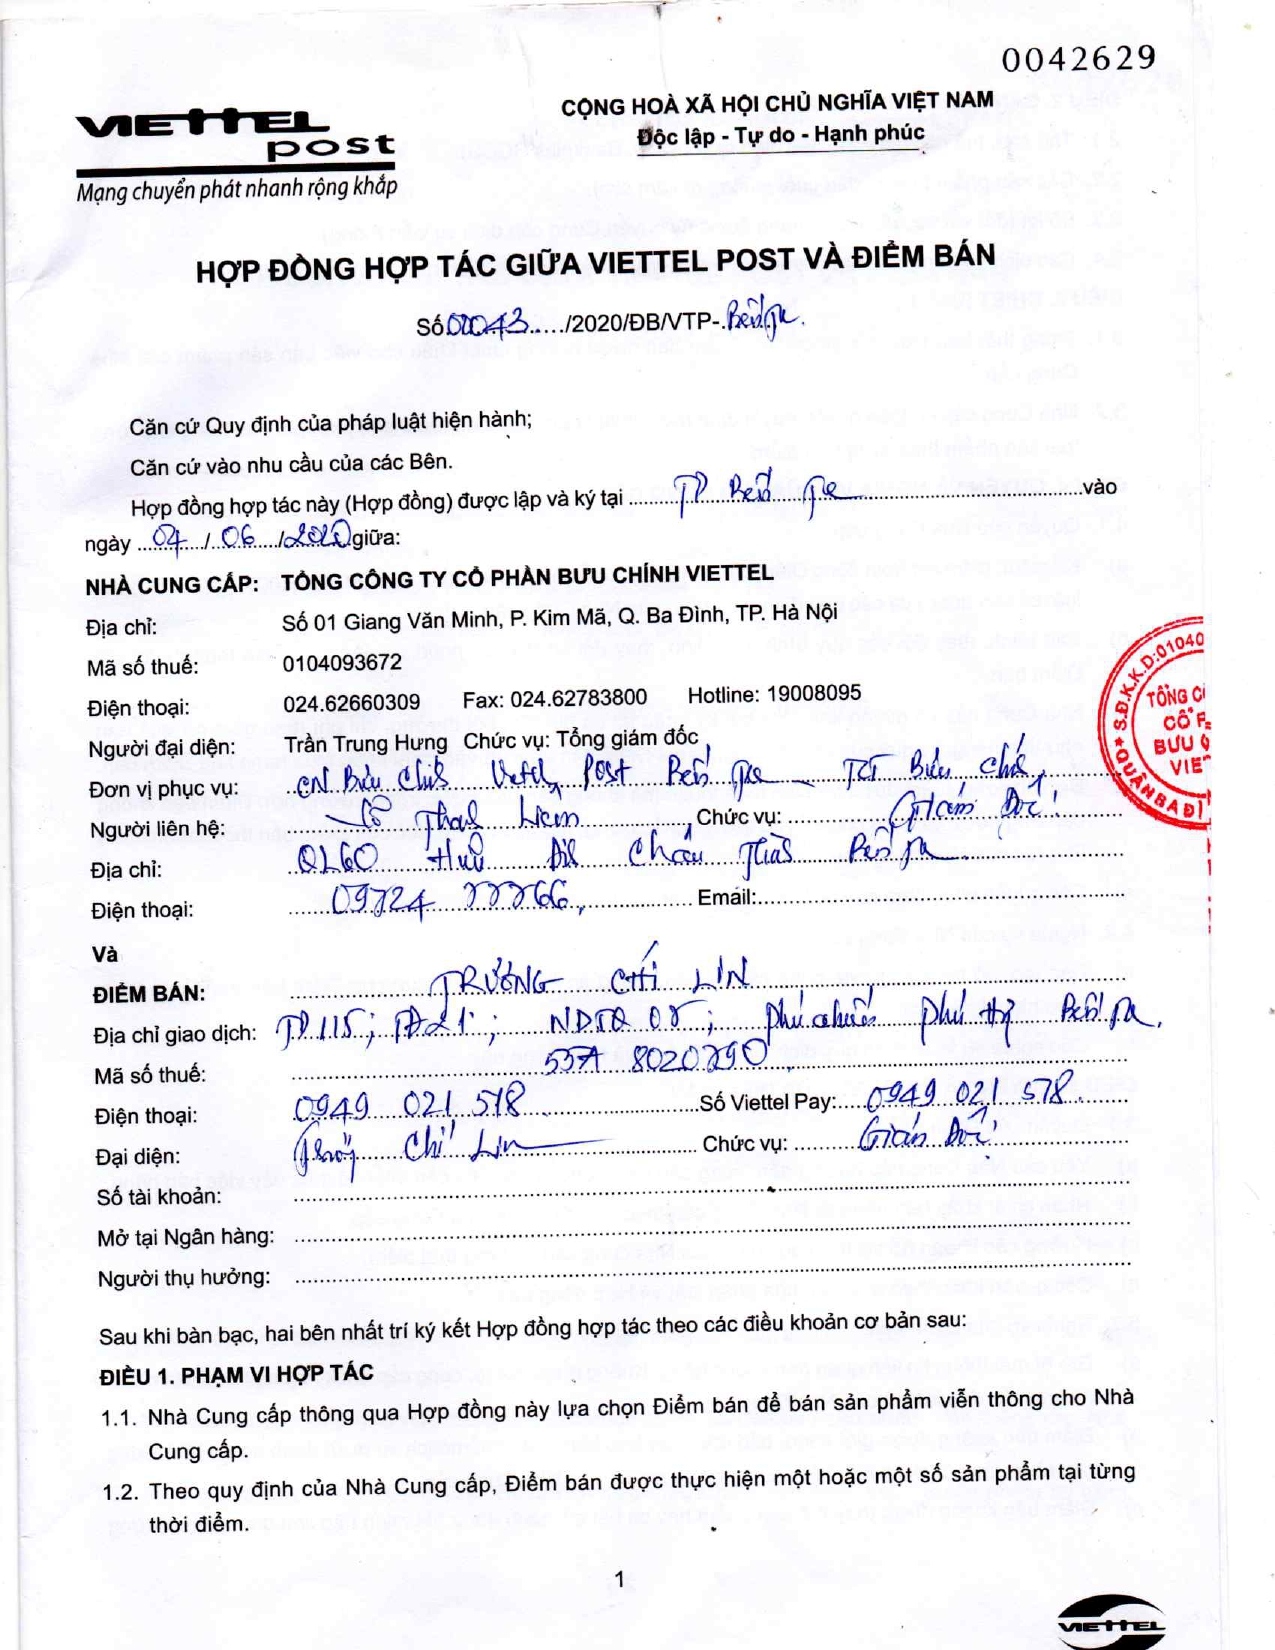 0042629
VIETTEL
post
Mạng chuyển phát nhanh rộng khắp
CỘNG HOÀ XÃ HỘI CHỦ NGHĨA VIỆT NAM
Độc lập - Tự do - Hạnh phúc
HỢP ĐỒNG HỢP TÁC GIỮA VIETTEL POST VÀ ĐIỂM BÁN
Số 02043...../2020/ĐB/VTP-.Bến Tre.
Căn cứ Quy định của pháp luật hiện hành;
Căn cứ vào nhu cầu của các Bên.
Hợp đồng hợp tác này (Hợp đồng) được lập và ký tại TP Bến Tre vào
ngày 04 / 06 / 2020 giữa:
NHÀ CUNG CẤP: TỔNG CÔNG TY CỔ PHẦN BƯU CHÍNH VIETTEL
Địa chỉ: Số 01 Giang Văn Minh, P. Kim Mã, Q. Ba Đình, TP. Hà Nội
Mã số thuế: 0104093672
Điện thoại: 024.62660309 Fax: 024.62783800 Hotline: 19008095
Người đại diện: Trần Trung Hưng Chức vụ: Tổng giám đốc
Đơn vị phục vụ: CN Bưu Chính Viettel Post Bến Tre - TCT Bưu Chính
Người liên hệ: Liêm Chức vụ: Giám Đốc
Địa chỉ: QL60 Hữu Châu Thành Bến Tre
Điện thoại: 09724 77766 Email:
Và
ĐIỂM BÁN: TRƯƠNG CHÍ LIN
Địa chỉ giao dịch: TP115; TĐ21; NDTQ 05; Phú Nhuận Bến Tre.
Mã số thuế: 55A 8020790
Điện thoại: 0949 021 578 Số Viettel Pay: 0949 021 578.
Đại diện: Trương Chí Lin Chức vụ: Giám Đốc
Số tài khoản:
Mở tại Ngân hàng:
Người thụ hưởng:
S.Đ.K.K.D:01040
TỔNG C
CỔ P
BƯU
VIE
QUẬN BA ĐÌ
Sau khi bàn bạc, hai bên nhất trí ký kết Hợp đồng hợp tác theo các điều khoản cơ bản sau:
ĐIỀU 1. PHẠM VI HỢP TÁC
1.1. Nhà Cung cấp thông qua Hợp đồng này lựa chọn Điểm bán để bán sản phẩm viễn thông cho Nhà
Cung cấp.
1.2. Theo quy định của Nhà Cung cấp, Điểm bán được thực hiện một hoặc một số sản phẩm tại từng
thời điểm.
1
VIETTEL